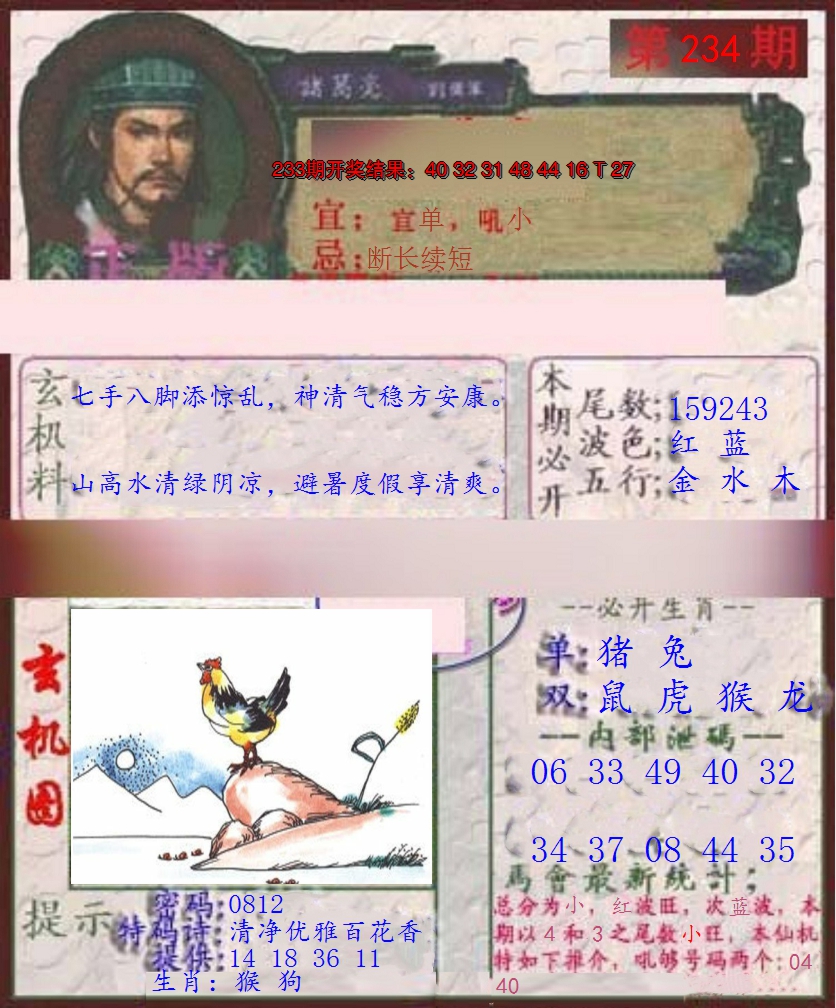 第 234 期
諸葛亮
233期开奖结果：40 32 31 48 44 16 T 27
宜；宜单，吼小
忌；断长续短
正版
玄机料
七手八脚添惊乱，神清气稳方安康。
山高水清绿阴凉，避暑度假享清爽。
本期必开
尾数；159243
波色；红 蓝
五行；金 水 木
玄机图
--必开生肖--
单：猪 兔
双：鼠 虎 猴 龙
一内部泄碼一
06 33 49 40 32
34 37 08 44 35
馬會最新統計；
总分为小，红波旺，次蓝波，本
期以４和３之尾数小旺，本仙机
特如下推介，吼够号码两个：04
40
提示
密码：0812
特码诗：清净优雅百花香
提供：14 18 36 11
生肖：猴 狗